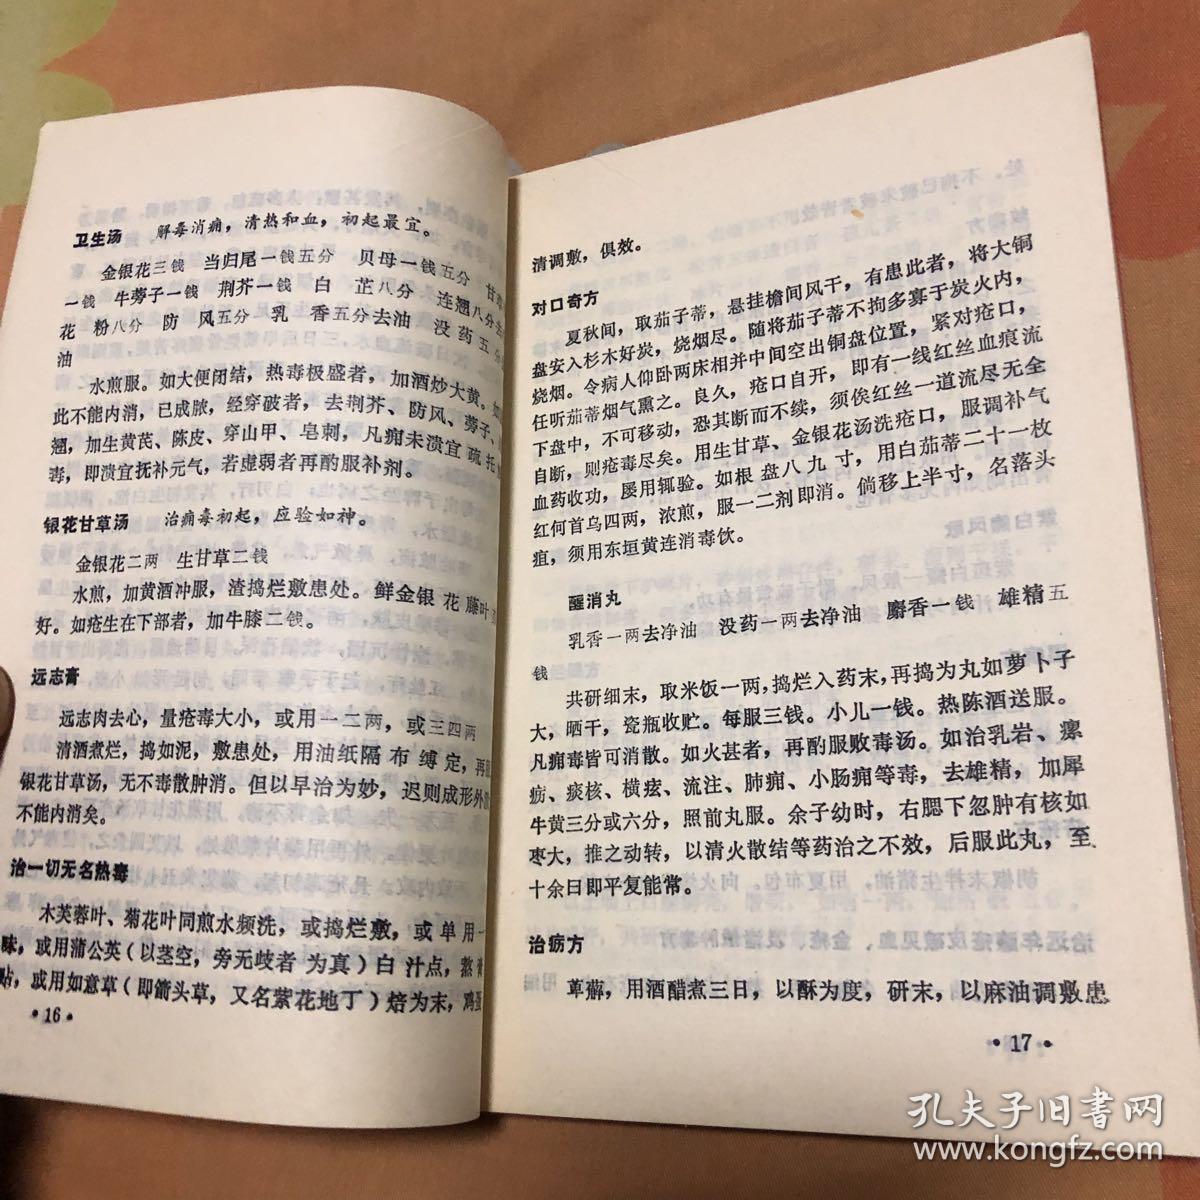 卫生汤 解毒消痈，清热和血，初起最宜。
金银花三钱 当归尾一钱五分 贝母一钱五分 甘
一钱 牛蒡子一钱 荆芥一钱 白 芷八分 连翘八分
花 粉八分 防 风五分 乳 香五分去油 没药五分
油
水煎服。如大便闭结，热毒极盛者，加酒炒大黄。
此不能内消，已成脓，经穿破者，去荆芥、防风、蒡子、
翘，加生黄芪、陈皮、穿山甲、皂刺，凡痈未溃宜疏托
毒，即溃宜抚补元气，若虚弱者再酌服补剂。
银花甘草汤 治痈毒初起，应验如神。
金银花二两 生甘草二钱
水煎，加黄酒冲服，渣捣烂敷患处。鲜金银花藤叶
好。如疮生在下部者，加牛膝二钱。
远志膏
远志肉去心，量疮毒大小，或用一二两，或三四两
清酒煮烂，捣如泥，敷患处，用油纸隔布缚定，再
银花甘草汤，无不毒散肿消。但以早治为妙，迟则成形外
不能内消矣。
治一切无名热毒
木芙蓉叶、菊花叶同煎水频洗，或捣烂敷，或单用一
味，或用蒲公英（以茎空，旁无歧者 为真）白汁点，熬
贴，或用如意草（即箭头草，又名紫花地丁）焙为末，鸡蛋
·16·
清调敷，俱效。
对口奇方
夏秋间，取茄子蒂，悬挂檐间风干，有患此者，将大铜
盘安入杉木好炭，烧烟尽。随将茄子蒂不拘多寡于炭火内，
烧烟。令病人仰卧两床相并中间空出铜盘位置，紧对疮口，
任听茄蒂烟气熏之。良久，疮口自开，即有一线红丝血痕流
下盘中，不可移动，恐其断而不续，须俟红丝一道流尽无全
自断，则疮毒尽矣。用生甘草、金银花汤洗疮口，服调补气
血药收功，屡用辄验。如根盘八九寸，用白茄蒂二十一枚
红何首乌四两，浓煎，服一二剂即消。倘移上半寸，名落头
疽，须用东垣黄连消毒饮。
醒消丸
乳香一两去净油 没药一两去净油 麝香一钱 雄精五
钱
共研细末，取米饭一两，捣烂入药末，再捣为丸如萝卜子
大，晒干，瓷瓶收贮。每服三钱。小儿一钱。热陈酒送服。
凡痈毒皆可消散。如火甚者，再酌服败毒汤。如治乳岩、瘰
疬、痰核、横痃、流注、肺痈、小肠痈等毒，去雄精，加犀
牛黄三分或六分，照前丸服。余子幼时，右腮下忽肿有核如
枣大，推之动转，以清火散结等药治之不效，后服此丸，至
十余日即平复能常。
治疬方
萆薢，用酒醋煮三日，以酥为度，研末，以麻油调敷患
·17·
孔夫子旧书网
www.kongfz.com